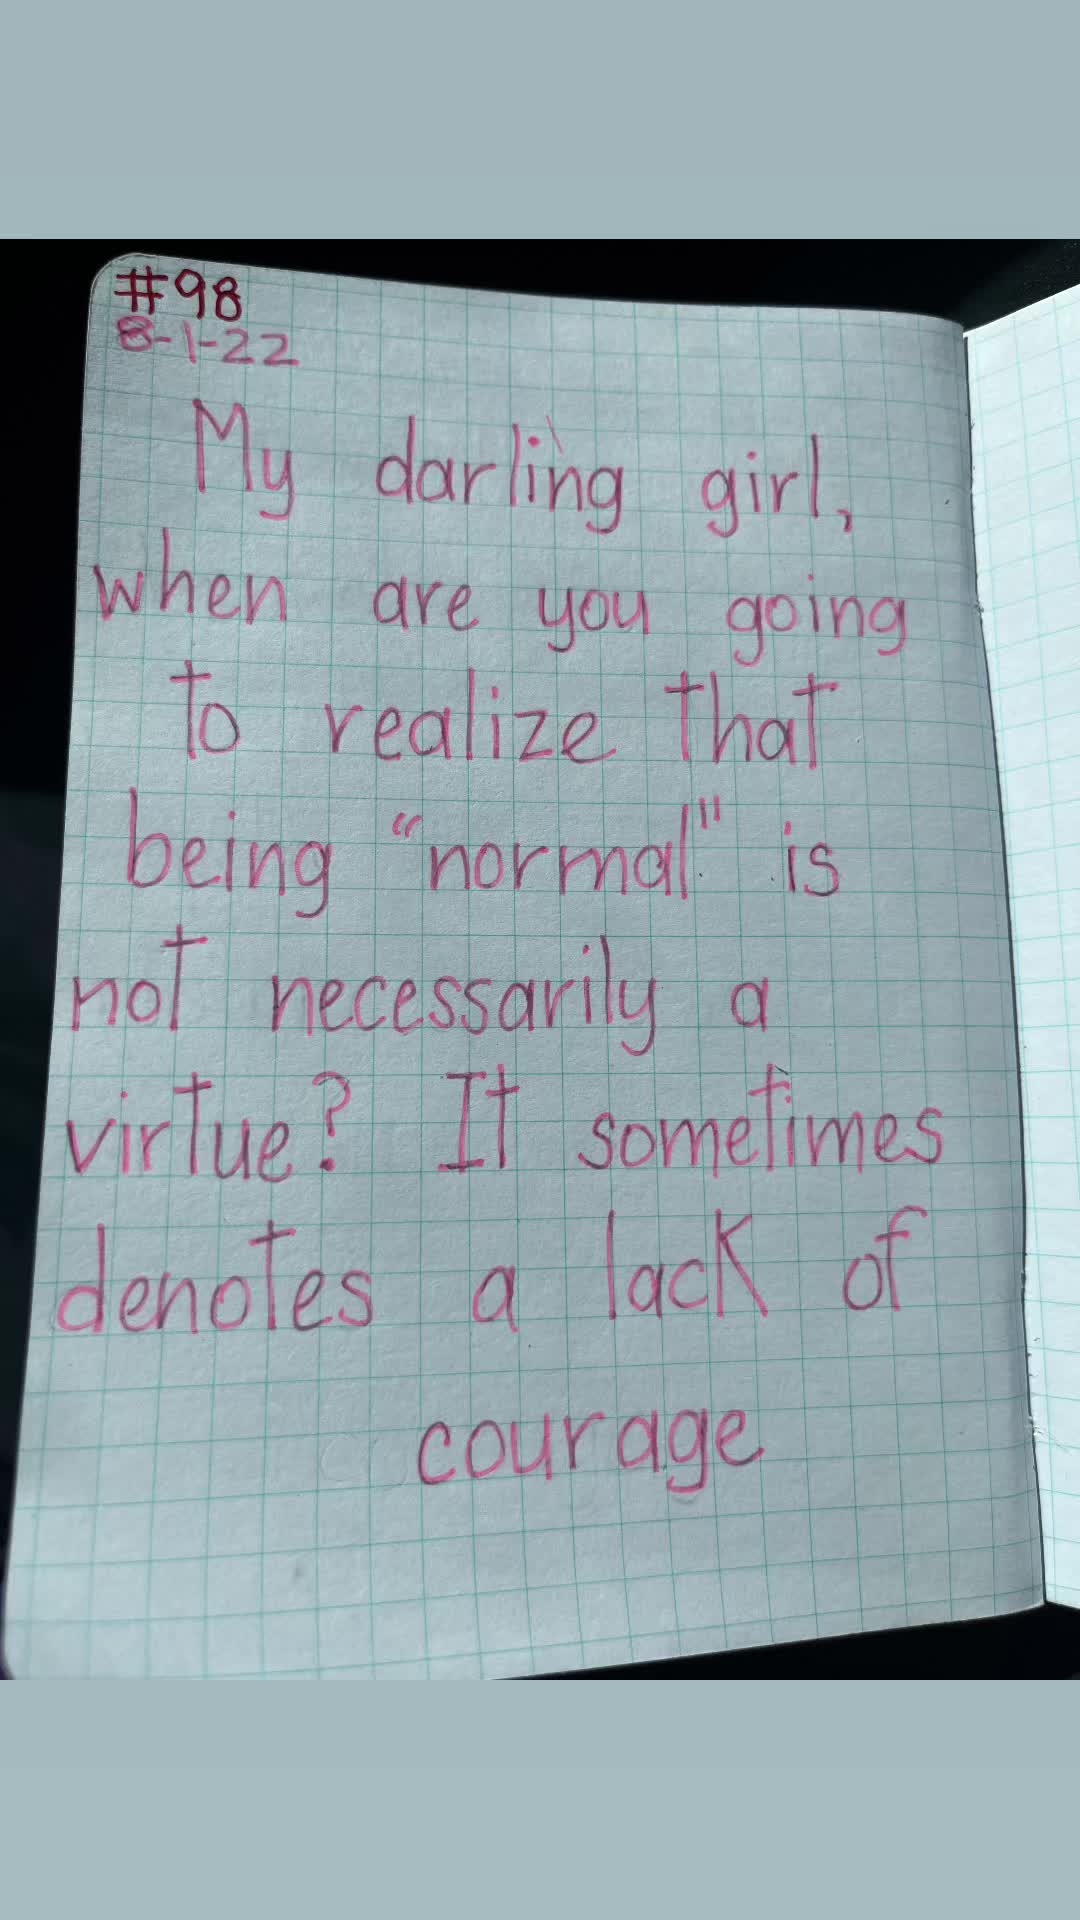 #98
8-1-22
My darling girl,
when are you going
to realize that
being “normal" is
not necessarily a
virtue? It sometimes
denotes a lack of
courage